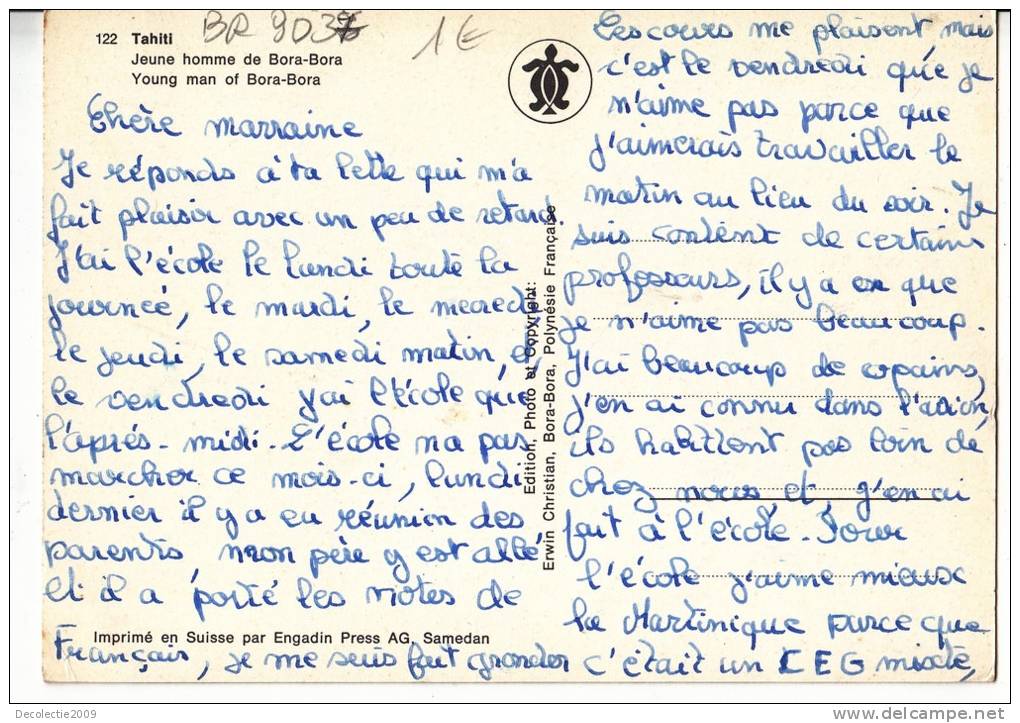 BR 9037
1€
122 Tahiti
Jeune homme de Bora-Bora
Young man of Bora-Bora
Chère marraine
Je réponds à ta lette qui m'a
fait plaisir avec un peu de retard.
J'ai l'école le lundi toute la
journeé, le mardi, le mecredi,
le jeudi, le samedi matin, et
le vendredi j'ai l'école que
l'après-midi. L'école n'a pas
marcher ce mois-ci, lundi
dernier il y a eu réunion des
parents, mon père y est allé
et il a porté les notes de
Français, je me suis fait gronder
Imprimé en Suisse par Engadin Press AG, Samedan
Edition, Photo et Copyright:
Erwin Christian, Bora-Bora, Polynésie Française
Les cours me plaisent mais
c'est le vendredi que je
n'aime pas parce que
j'aimerais travailler le
matin au lieu du soir. Je
suis content de certains
professeurs, il y a en que
je n'aime pas beaucoup.
J'ai beaucoup de copains,
j'en ai connu dans l'avion,
ils habittent pas loin de
chez nous et j'en ai
fait à l'école. Pour
l'école j'aime mieux
la Martinique parce que
c'était un CEG mixte,
Decolectie2009